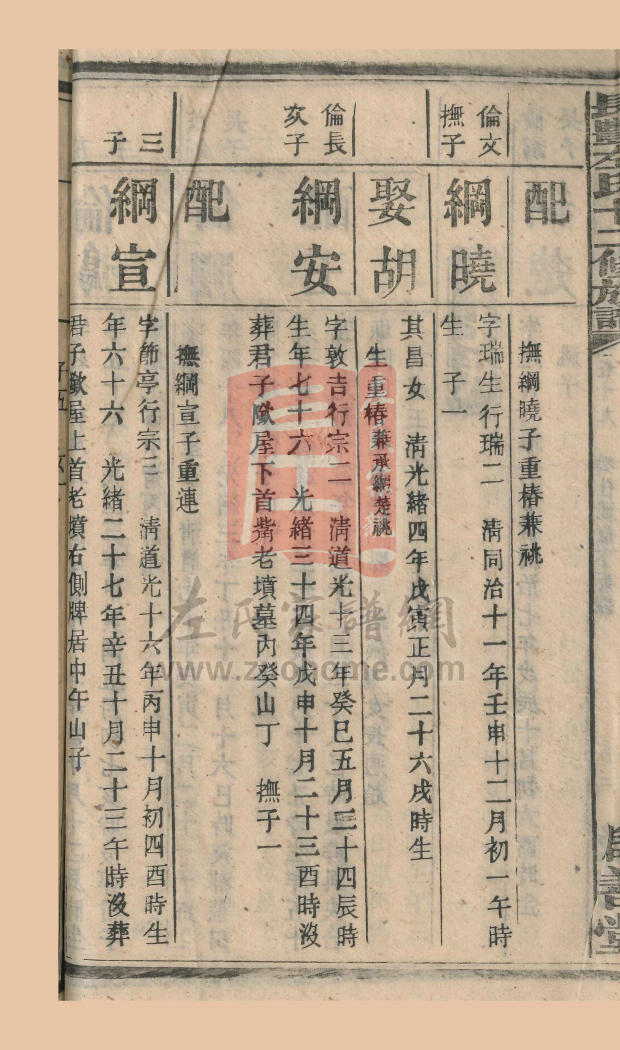 氏十二修族譜
善堂
配
撫綱曉子重椿兼祧
倫文
撫子
綱曉
字瑞生行瑞二 清同治十一年壬申十二月初一午時
生 子一
娶胡
其昌女 清光緒四年戊寅正月二十六戌時生
生重椿兼承綱楚祧
倫長
次子
綱安
字敦吉行宗二 清道光十三年癸巳五月二十四辰時
生年七十六 光緒三十四年戊申十月二十三酉時沒
葬君子歐屋下首觜老墳墓內癸山丁 撫子一
配
撫綱宣子重連
三
子
綱宣
字節亭行宗三 清道光十六年丙申十月初四酉時生
年六十六 光緒二十七年辛丑十月二十三午時沒葬
君子歐屋上首老墳右側牌居中午山子
左氏家譜網
www.zuohome.com